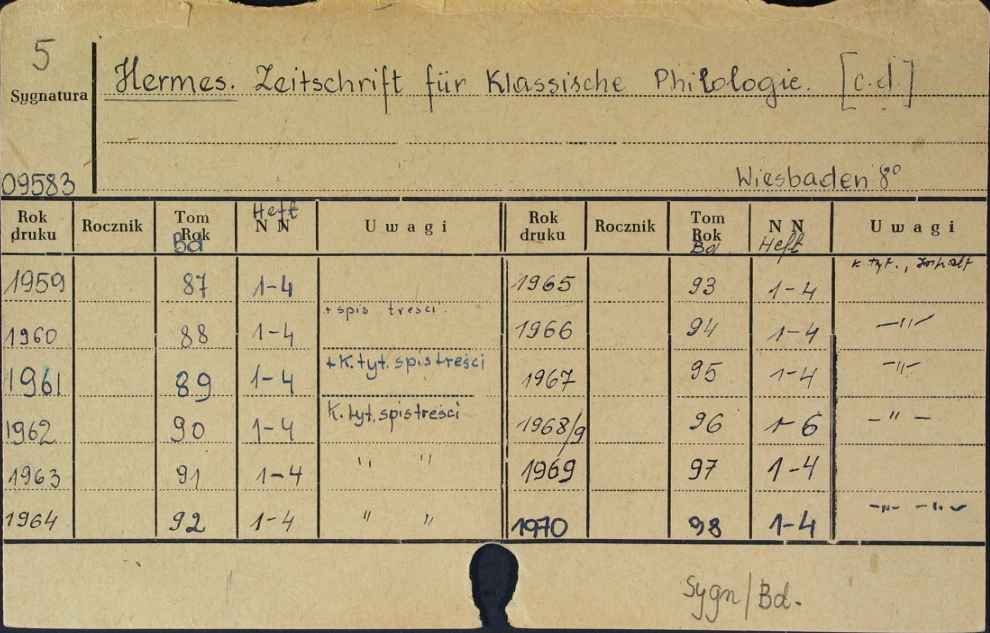 5
Hermes. Zeitschrift für Klassische Philologie. [c.d.]
Sygnatura
09583
Wiesbaden 8°
Rok druku Rocznik Tom Rok Bd Heft N N Uwagi Rok druku Rocznik Tom Rok Bd N N Heft Uwagi
1959 87 1-4 1965 93 1-4 k. tyt.,
1960 88 1-4 + spis treści 1966 94 1-4 —"—
1961 89 1-4 + K. tyt. spis treści 1967 95 1-4 —"—
1962 90 1-4 K. tyt. spis treści 1968/9 96 1-6 — " —
1963 91 1-4 " " 1969 97 1-4
1964 92 1-4 " " 1970 98 1-4 —"— —"—
Sygn/Bd.